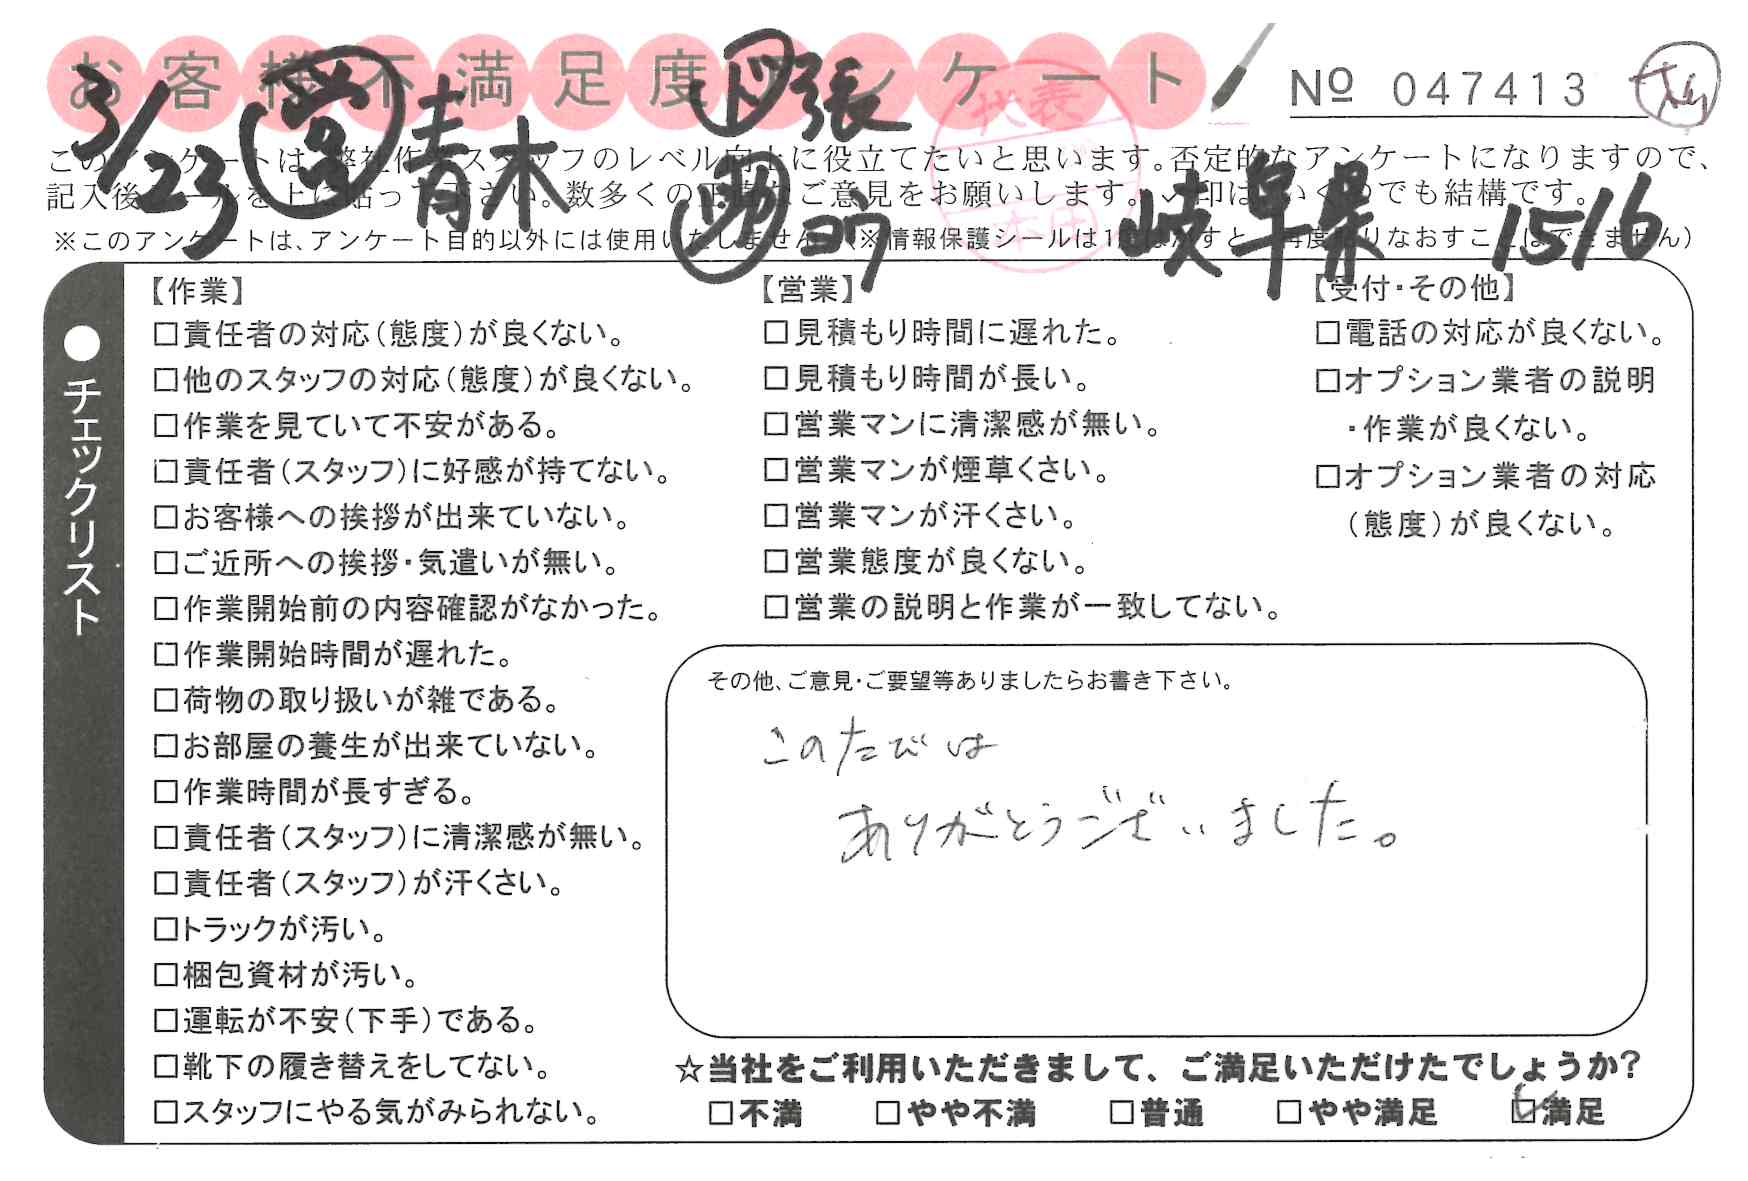 お客様不満足度アンケート
№ 047413
3/23 営 青木
張
岐阜県 1516
代表
このアンケートは、弊社作業スタッフのレベル向上に役立てたいと思います。否定的なアンケートになりますので、
記入後シールを上に貼って下さい。数多くの正直なご意見をお願いします。✓印はいくつでも結構です。
※このアンケートは、アンケート目的以外には使用いたしません。(※情報保護シールは1度はがすと、再度貼りなおすことはできません)
●チェックリスト
【作業】
□責任者の対応(態度)が良くない。
□他のスタッフの対応(態度)が良くない。
□作業を見ていて不安がある。
□責任者(スタッフ)に好感が持てない。
□お客様への挨拶が出来ていない。
□ご近所への挨拶・気遣いが無い。
□作業開始前の内容確認がなかった。
□作業開始時間が遅れた。
□荷物の取り扱いが雑である。
□お部屋の養生が出来ていない。
□作業時間が長すぎる。
□責任者(スタッフ)に清潔感が無い。
□責任者(スタッフ)が汗くさい。
□トラックが汚い。
□梱包資材が汚い。
□運転が不安(下手)である。
□靴下の履き替えをしてない。
□スタッフにやる気がみられない。
【営業】
□見積もり時間に遅れた。
□見積もり時間が長い。
□営業マンに清潔感が無い。
□営業マンが煙草くさい。
□営業マンが汗くさい。
□営業態度が良くない。
□営業の説明と作業が一致してない。
【受付・その他】
□電話の対応が良くない。
□オプション業者の説明
・作業が良くない。
□オプション業者の対応
(態度)が良くない。
その他、ご意見・ご要望等ありましたらお書き下さい。
このたびは
ありがとうございました。
☆当社をご利用いただきまして、ご満足いただけたでしょうか?
□不満 □やや不満 □普通 □やや満足 ☑満足